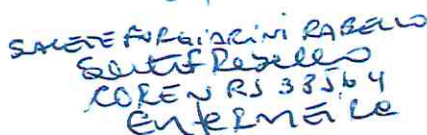 SALETE FURGIARINI RABELLO
Salete F Rabello
COREN RS 33564
ENFERMEIRA